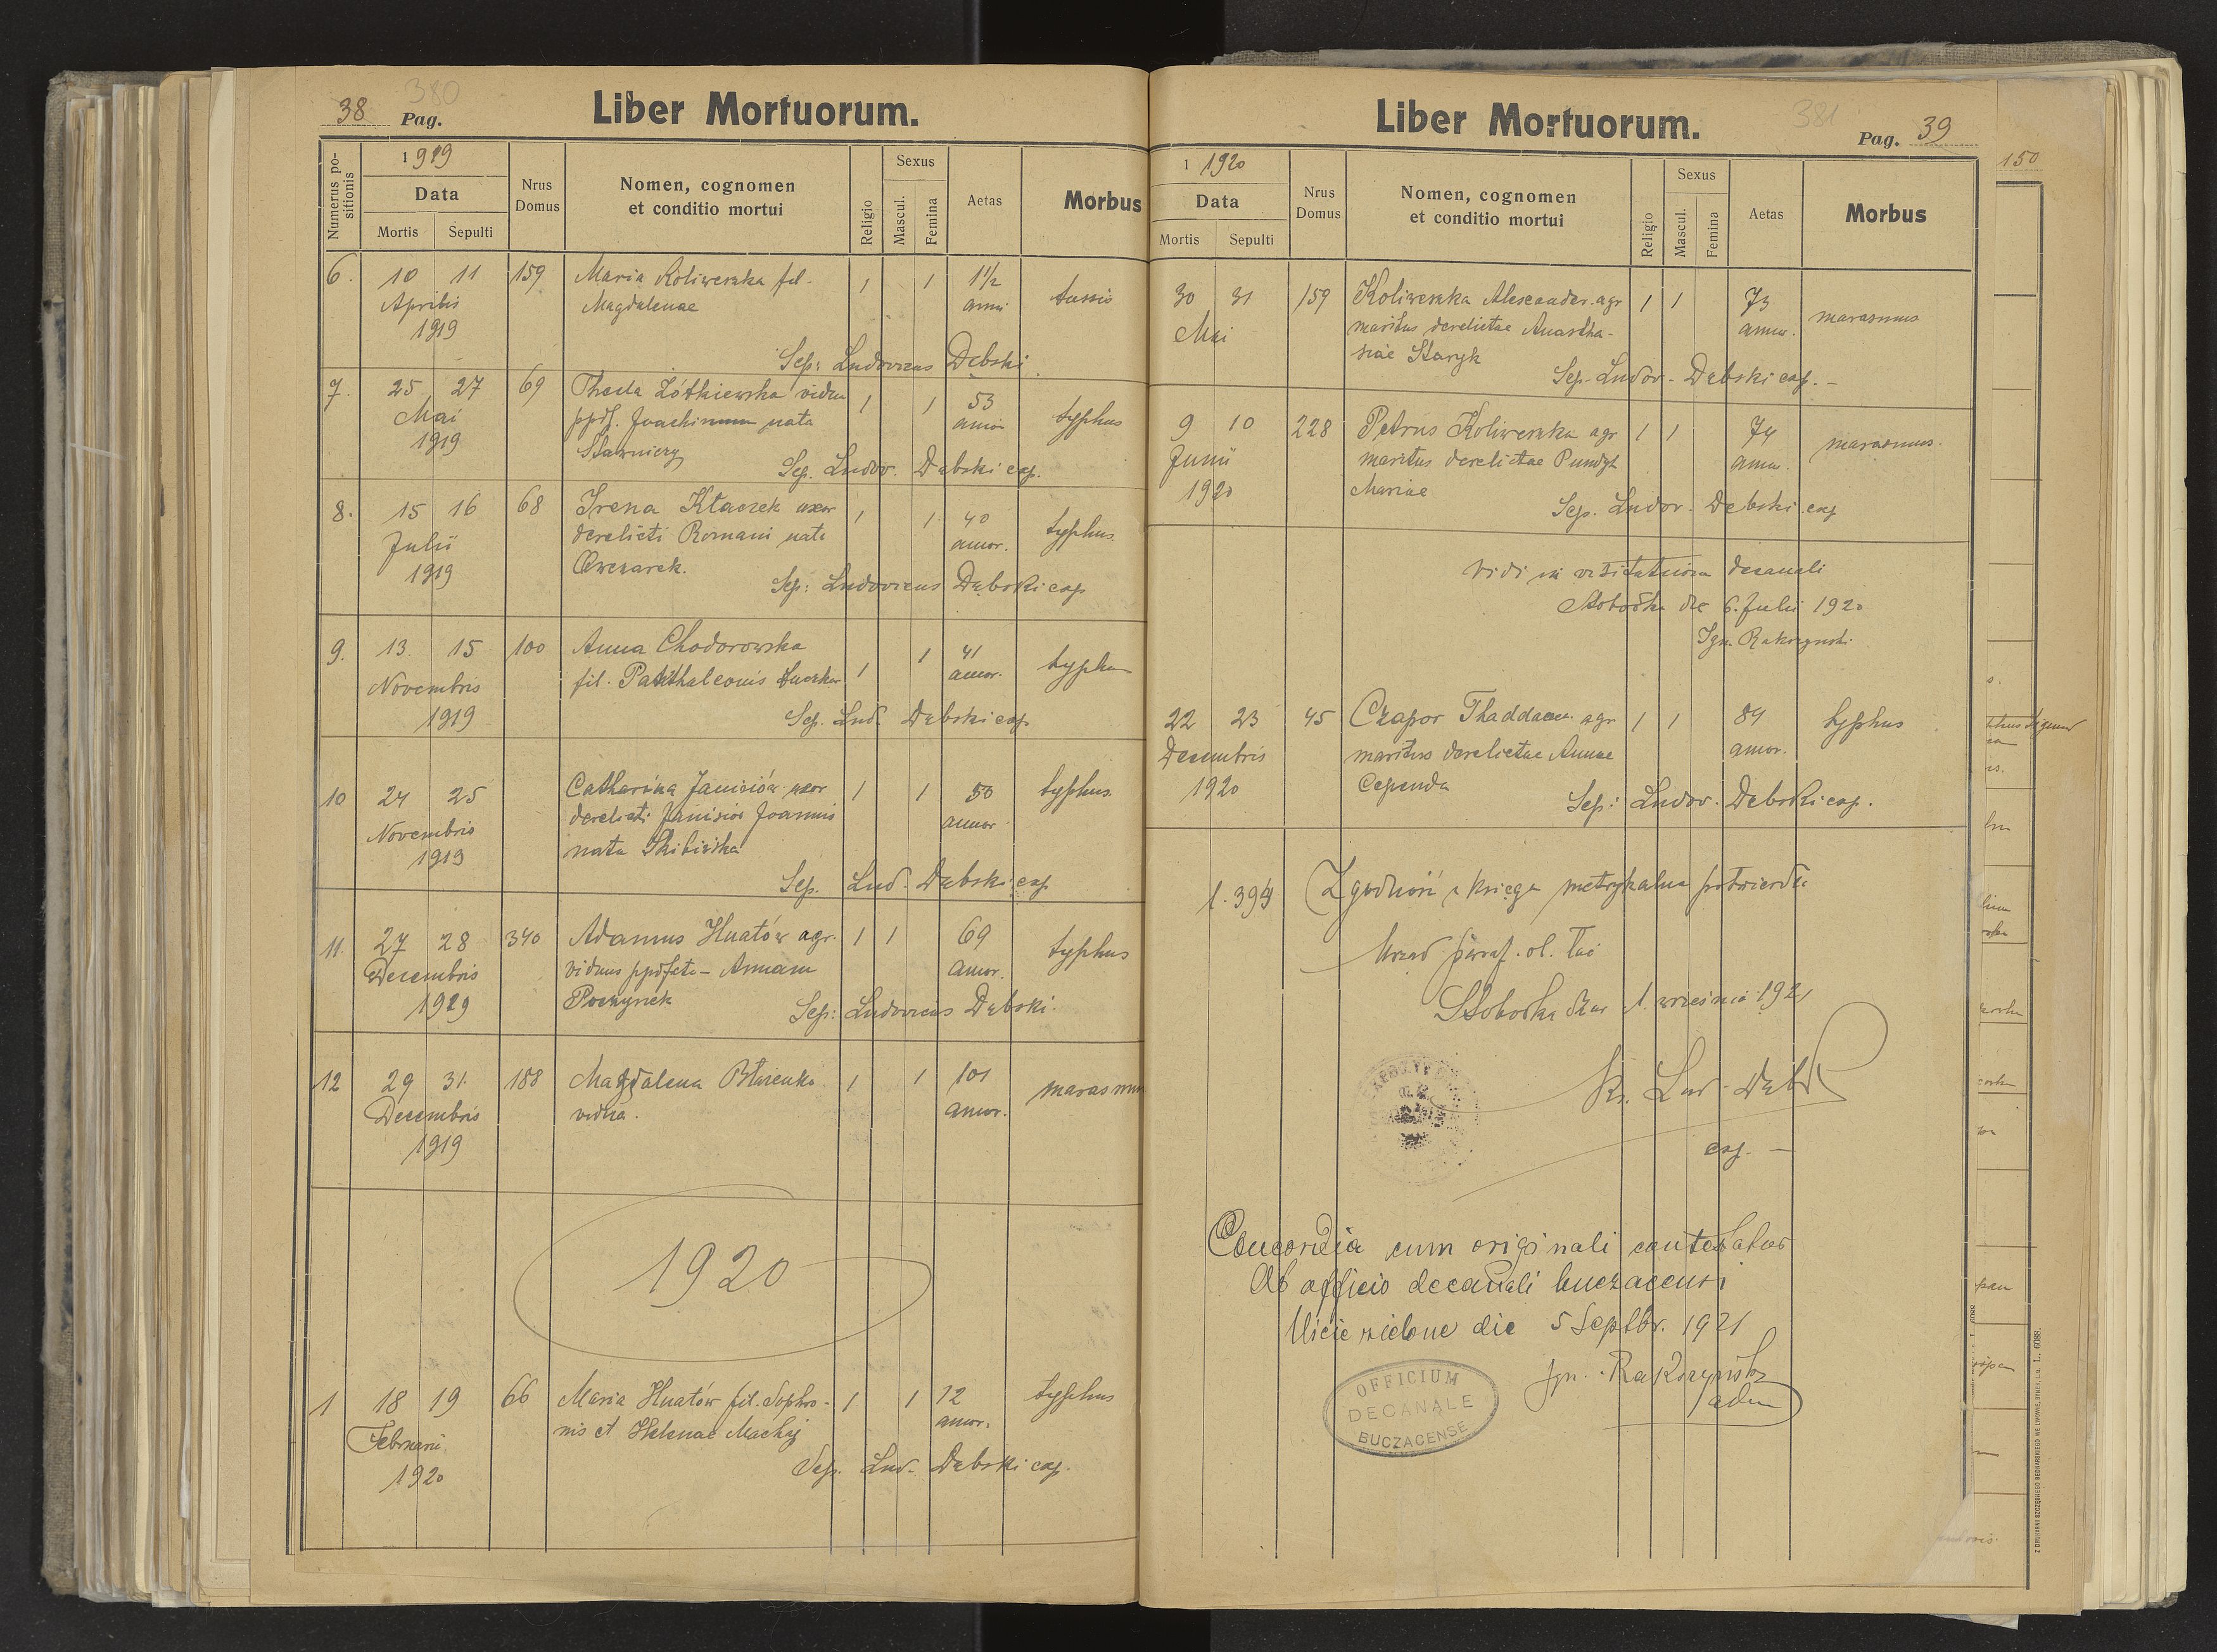 38 Pag.
380
Liber Mortuorum.
Numerus positionis
1919
Data
Mortis Sepulti
Nrus Domus
Nomen, cognomen
et conditio mortui
Religio
Sexus
Mascul. Femina
Aetas
Morbus
6. 10 11 159 Maria Koliweszka fil. 1 1 1 1/2 tussis
Aprilis Magdalenae anni
1919
Sep: Ludovicus Dębski
7. 25 27 69 Thecla Żółkiewska vidua 1 1 53 typhus
Mai ppdf. Joachimum nata annor
1919 Stawniczy
Sep. Ludov. Dębski cap.
8. 15 16 68 Irena Kłaczek uxor 1 1 40 typhus
Julii derelicti Romani nata annor.
1919 Owczarek.
Sep: Ludovicus Dębski cap
9. 13. 15 100 Anna Chodorowska 1 1 41 typhus
Novembris fil. Panthaleonis annor.
1919
Sep. Lud. Dębski cap
10 24 25 Catharina Janisiów uxor 1 1 50 typhus
Novembris derelicti Janisiów Joannis annor
1919 nata
Sep. Lud. Dębski cap
11. 27 28 340 Adamus Hnatów agr. 1 1 69 typhus
Decembris viduus ppdfcte - Annam annor.
1919 Poczynek
Sep: Ludovicus Dębski.
12 29 31. 188 Magdalena 1 1 101 marasmus
Decembris vidua. annor.
1919
1920
1 18 19 66 Maria Hnatów fil. Sophro- 1 1 12 typhus
Februarii nis et Helenae Machaj annor.
1920
Sep. Lud. Dębski cap.
Liber Mortuorum.
381
Pag. 39
1 1920
Data
Mortis Sepulti
Nrus Domus
Nomen, cognomen
et conditio mortui
Religio
Sexus
Mascul. Femina
Aetas
Morbus
30 31 159 Koliweszka Alexander agr 1 1 73 marasmus
Mai maritus derelictae Anastha- annor.
siae Staryk
Sep. Ludov. Dębski cap. -
9 10 228 Petrus Koliweszka agr 1 1 74 marasmus.
Junii maritus derelictae Pundyk annor.
1920 Mariae
Sep. Ludov. Dębski cap
Vidi in visitatione decanali
Słobódka die 6. Julii 1920
Ign. Rakszyński
22 23 45 Czapor Thaddaeus agr 1 1 84 typhus
Decembris maritus derelictae Annae annor.
1920 Cependa
Sep: Ludov. Dębski cap.
l. 394 Zgodność z księgą metrykalną potwierdza
Urząd paraf. ob. łać
Słobódka 1. września 1921
Ks. Lud. Dębski
cap. -
Concordia cum originali contestatur
Ab officio decanali buczacensi
Uście zielone die 5 Septbr. 1921
Ign. Rakszyński
adm
OFFICIUM
DECANALE
BUCZACENSE
150